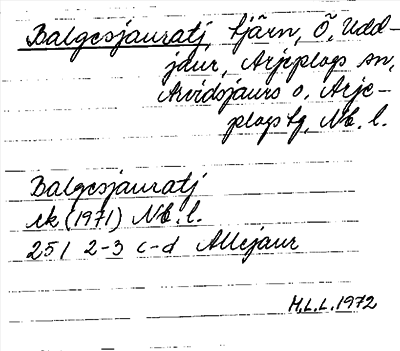 Balgesjauratj, tjärn, Ö, Udd-
jaur, Arjeplogs sn,
Arvidsjaurs o. Arje-
plogs tg, Nb. l.
Balgesjauratj
ek (1971) Nb. l.
25 I 2-3 c-d Allejaur
H.L.L. 1972